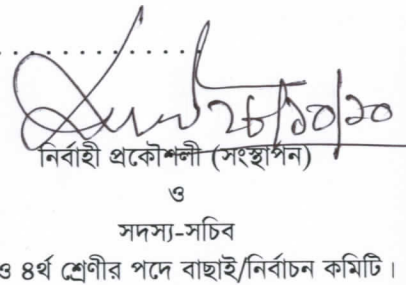 ২৮/১০/১০
নির্বাহী প্রকৌশলী (সংস্থাপন)
ও
সদস্য-সচিব
ও ৪র্থ শ্রেণীর পদে বাছাই/নির্বাচন কমিটি।